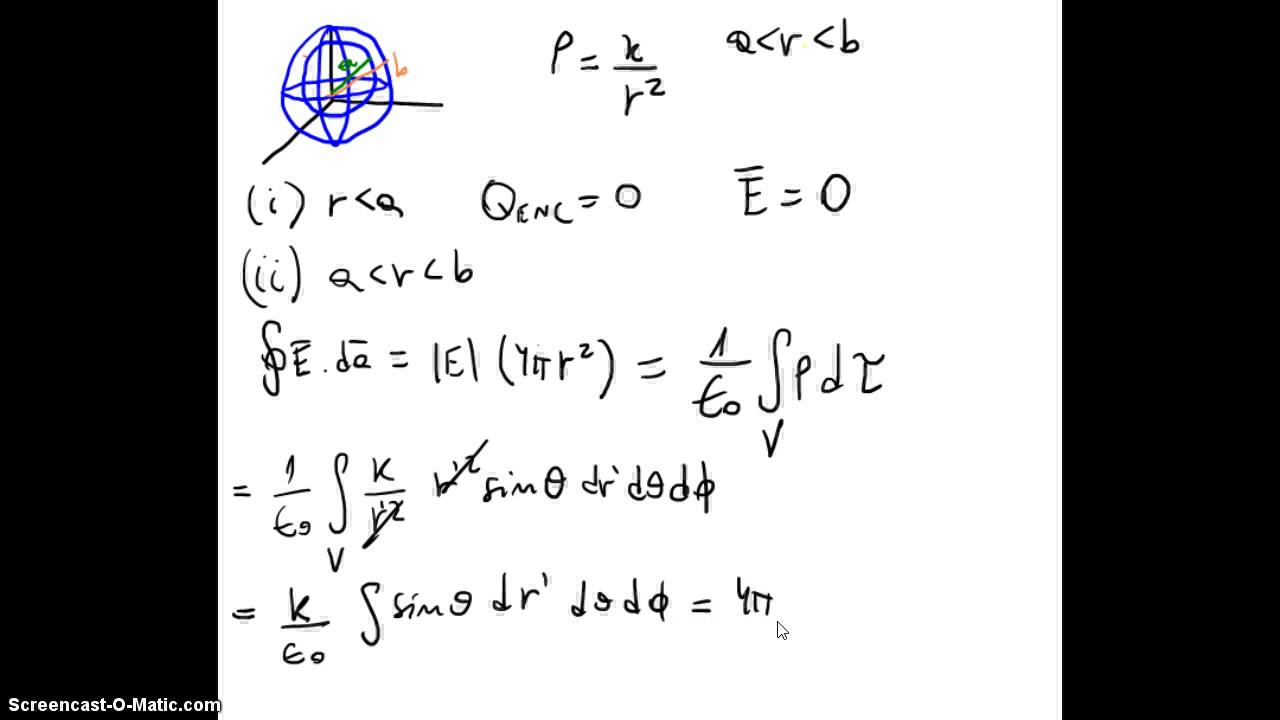 a b ρ = k/r² a<r<b
(i) r<a Q_ENC = 0 E̅ = 0
(ii) a<r<b
∮ E̅ . da̅ = |E| (4πr²) = 1/ε₀ ∫_V ρ dτ
= 1/ε₀ ∫_V k/r'² r'² sinθ dr' dθ dϕ
= k/ε₀ ∫ sinθ dr' dθ dϕ = 4π
Screencast-O-Matic.com